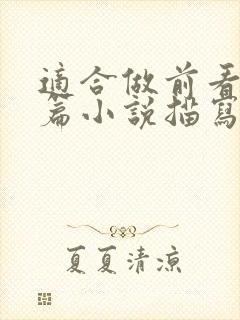 適合做前看
篇小說描寫
夏夏清涼